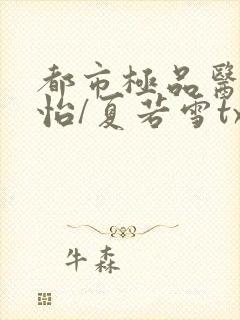 都市極品醫
怡/夏若雪tx
牛森